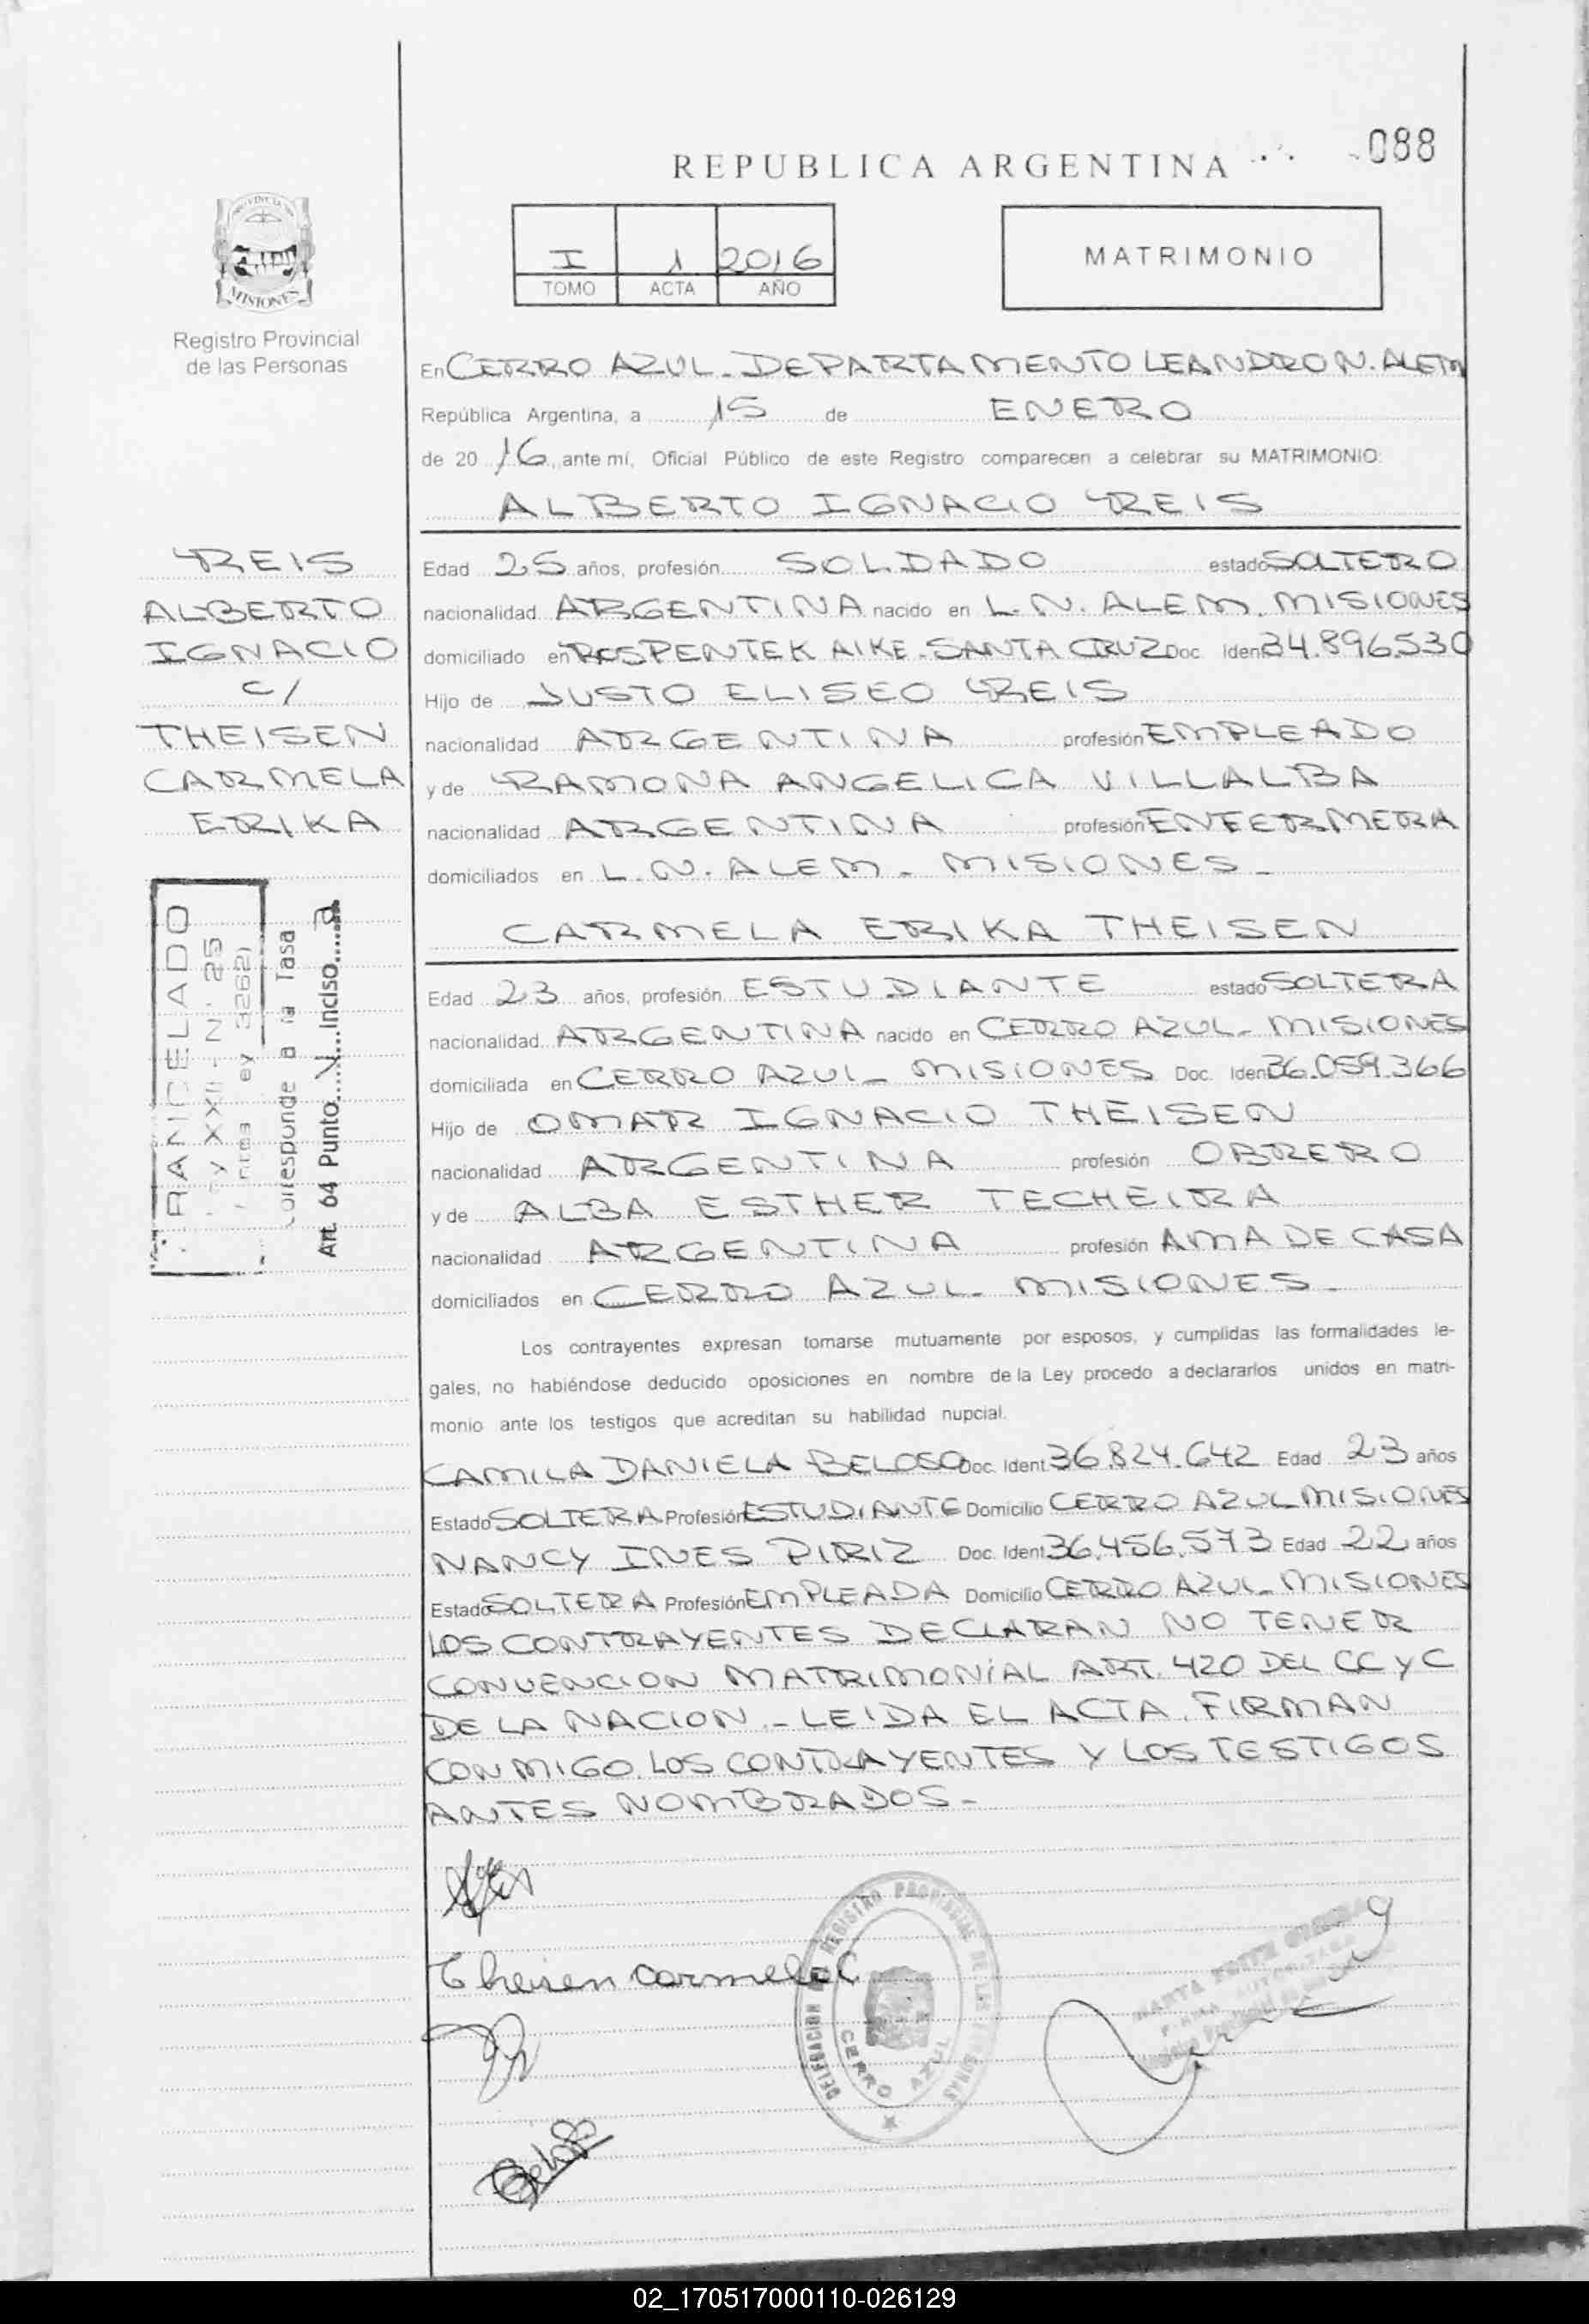 088
REPUBLICA ARGENTINA
I 1 2016
TOMO ACTA AÑO
MATRIMONIO
MISIONES
Registro Provincial
de las Personas
En CERRO AZUL - DEPARTAMENTO LEANDRO N. ALEM
República Argentina, a 15 de ENERO
de 20 16, ante mí, Oficial Público de este Registro comparecen a celebrar su MATRIMONIO:
ALBERTO IGNACIO REIS
REIS
ALBERTO
IGNACIO
C/
THEISEN
CARMELA
ERIKA
Edad 25 años, profesión SOLDADO estado SOLTERO
nacionalidad ARGENTINA nacido en L. N. ALEM. MISIONES
domiciliado en ROSPENTEK AIKE - SANTA CRUZ Doc. Iden 34.896.530
Hijo de JUSTO ELISEO REIS
nacionalidad ARGENTINA profesión EMPLEADO
y de RAMONA ANGELICA VILLALBA
nacionalidad ARGENTINA profesión ENFERMERA
domiciliados en L. N. ALEM - MISIONES -
CARMELA ERIKA THEISEN
Edad 23 años, profesión ESTUDIANTE estado SOLTERA
nacionalidad ARGENTINA nacido en CERRO AZUL - MISIONES
domiciliada en CERRO AZUL - MISIONES Doc. Iden 36.059.366
Hijo de OMAR IGNACIO THEISEN
nacionalidad ARGENTINA profesión OBRERO
y de ALBA ESTHER TECHEIRA
nacionalidad ARGENTINA profesión AMA DE CASA
domiciliados en CERRO AZUL - MISIONES -
Los contrayentes expresan tomarse mutuamente por esposos, y cumplidas las formalidades le-
gales, no habiéndose deducido oposiciones en nombre de la Ley procedo a declararlos unidos en matri-
monio ante los testigos que acreditan su habilidad nupcial.
CAMILA DANIELA BELOSO Doc. Ident 36.824.642 Edad 23 años
Estado SOLTERA Profesión ESTUDIANTE Domicilio CERRO AZUL MISIONES
NANCY INES PIRIZ Doc. Ident 36.456.573 Edad 22 años
Estado SOLTERA Profesión EMPLEADA Domicilio CERRO AZUL - MISIONES
LOS CONTRAYENTES DECLARAN NO TENER
CONVENCION MATRIMONIAL ART. 420 DEL CC y C
DE LA NACION. - LEIDA EL ACTA, FIRMAN
CONMIGO, LOS CONTRAYENTES Y LOS TESTIGOS
ANTES NOMBRADOS -
XXII - N° 25
3262)
a la Tasa
Art. 64 Punto V Inciso a
Theisen Carmela
DELEGACION REGISTRO PROVINCIAL DE LAS PERSONAS
CERRO AZUL
02_170517000110-026129